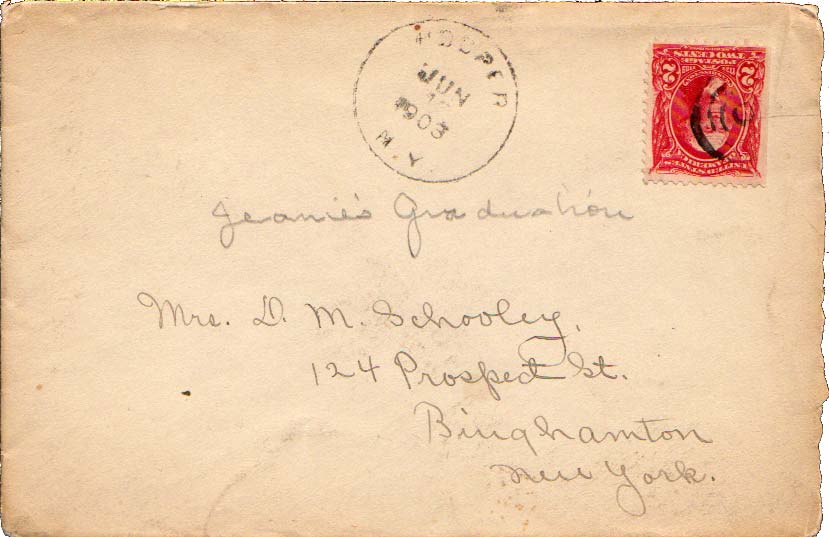 HOOPER
JUN
1903
N Y
TWO CENTS
POSTAGE
2 2
UNITED STATES
OF AMERICA
Jeanie's Graduation
Mrs. D. M. Schooley,
124 Prospect St.
Binghamton
New York.